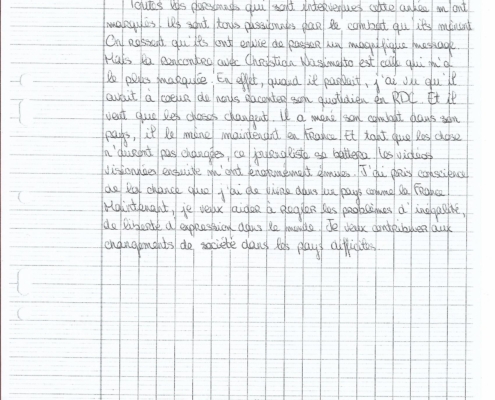 Toutes les personnes qui sont intervenues cette année m'ont
marquées. Ils sont tous passionnés par le combat qu'ils mènent
On ressent qu'ils ont envie de passer un magnifique message
Mais la rencontre avec Christian est celle qui m'a
le plus marquée. En effet, quand il parlait, j'ai vu qu'il
avait à coeur de nous raconter son quotidien en RDC. Et il
veut que les choses changent. Il a mené son combat dans son
pays, il le mène maintenant en France Et tant que les chose
n'auront pas changées, ce journaliste se battera. Les vidéos
visionnées ensuite m'ont énormément émues. J'ai pris conscience
de la chance que j'ai de vivre dans un pays comme la France
Maintenant, je veux aider à régler les problèmes d'inégalité,
de liberté d'expression dans le monde. Je veux contribuer aux
changements de société dans les pays difficiles.